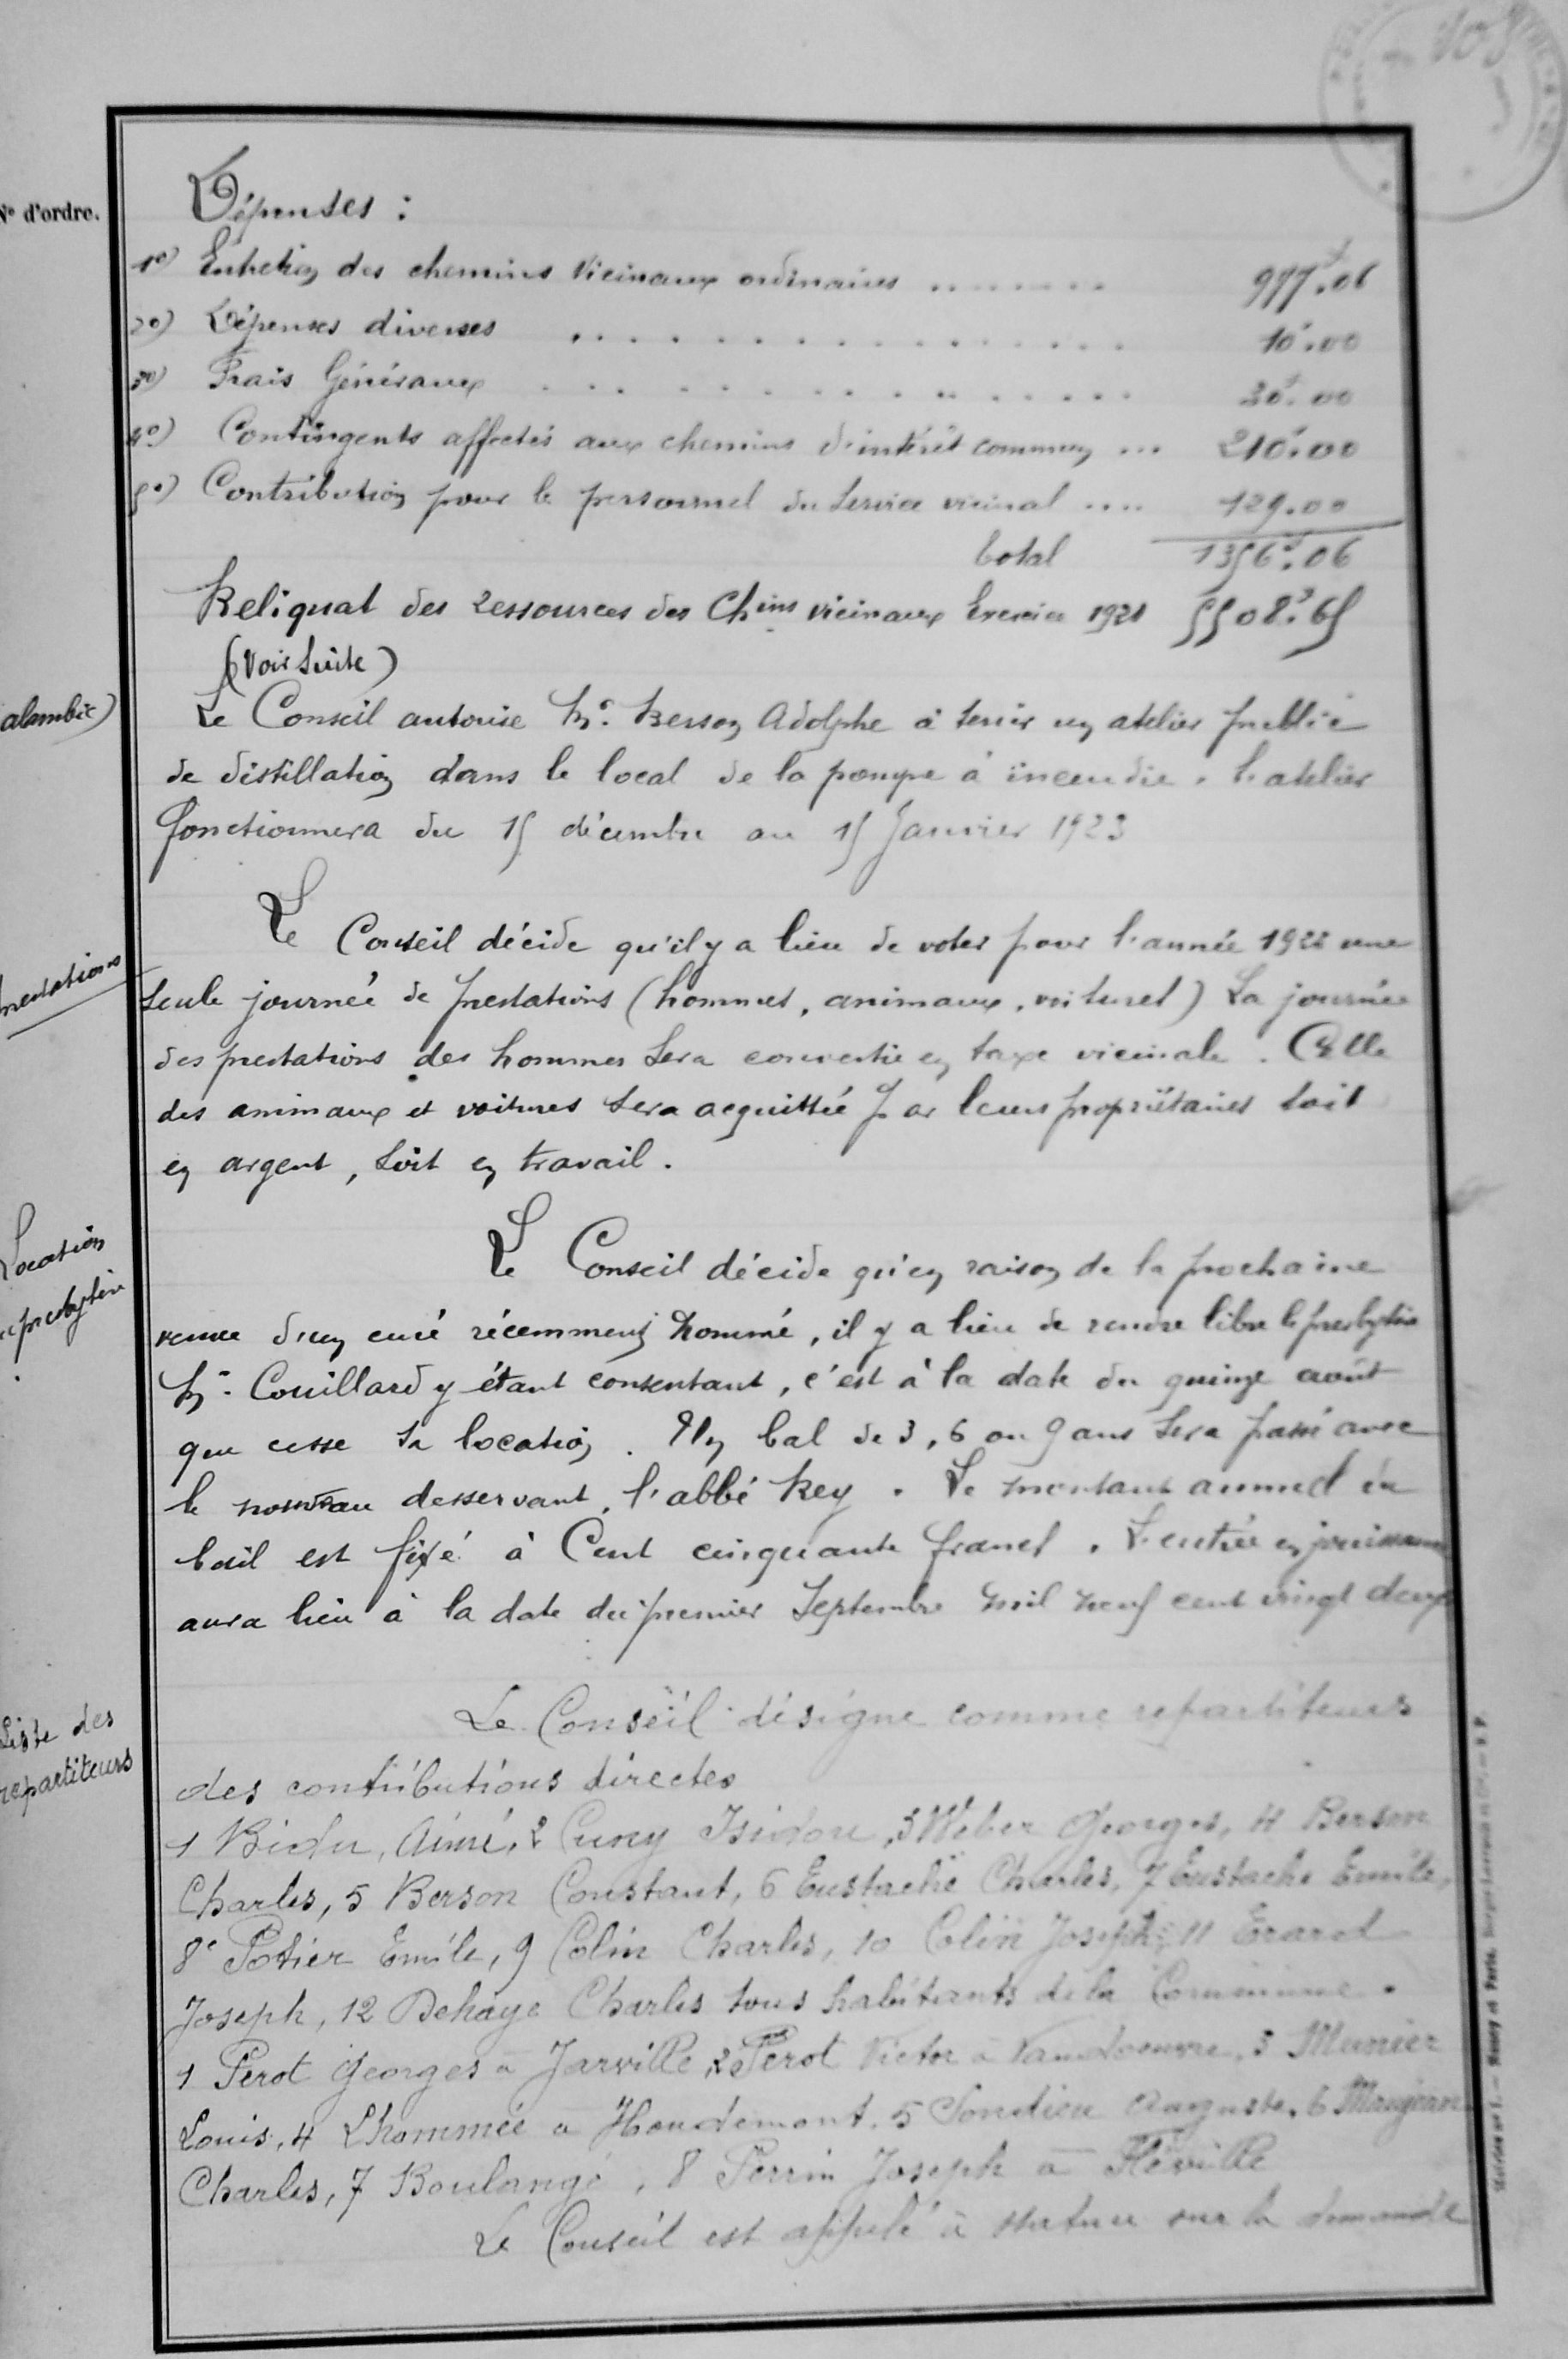 N° d'ordre.
Dépenses :
1°) Entretien des chemins vicinaux ordinaires ........ 977f.06
2°) Dépenses diverses ................ 10f.00
3°) Frais Généraux .............. 30f.00
4°) Contingents affectés aux chemins d'intérêt commun ... 210f.00
5°) Contribution pour le personnel du Service vicinal .... 129.00
total 1356f.06
Reliquat des ressources des Chins vicinaux Exercice 1921 5508f.65
(Voir suite)
alambic)
Le Conseil autorise Mr. Adolphe à tenir un atelier public
de distillation dans le local de la pompe à incendie. L'atelier
fonctionnera du 15 décembre au 15 Janvier 1923
Prestations
Le Conseil décide qu'il y a lieu de voter pour l'année 1922 une
seule journée de prestations (hommes, animaux, voitures) La journée
des prestations des hommes sera convertie en taxe vicinale. Celle
des animaux et voitures sera acquittée par leurs propriétaires soit
en argent, soit en travail.
Location
presbytère
Le Conseil décide qu'en raison de la prochaine
venue d'un curé récemment nommé, il y a lieu de rendre libre le presbytère
Mr. Couillard y étant consentant, c'est à la date du quinze août
que cesse sa location. Un bal de 3, 6 ou 9 ans sera passé avec
le nouveau desservant, l'abbé Rey. Le montant annuel du
bail est fixé à Cent cinquante francs. L'entrée en jouissance
aura lieu à la date du premier Septembre mil neuf cent vingt deux
Liste des
repartiteurs
Le Conseil désigne comme repartiteurs
des contributions directes
1 Aimé, 2 Cuny Isidore, 3 Weber Georges, 4 Berson
Charles, 5 Berson Constant, 6 Eustache Charles, 7 Eustache Emile,
8° Potier Emile, 9 Colin Charles, 10 Colin Joseph, 11 Erard
Joseph, 12 Dehaye Charles tous habitants de la Commune.
1 Perot Georges à Jarville, 2 Perot Victor à Vandoeuvre, 3 Munier
Louis, 4 Lhommée à Houdemont, 5 Auguste, 6 Maujean
Charles, 7 Boulangé, 8 Perrin Joseph à Fléville
Le Conseil est appelé à statuer sur la demande